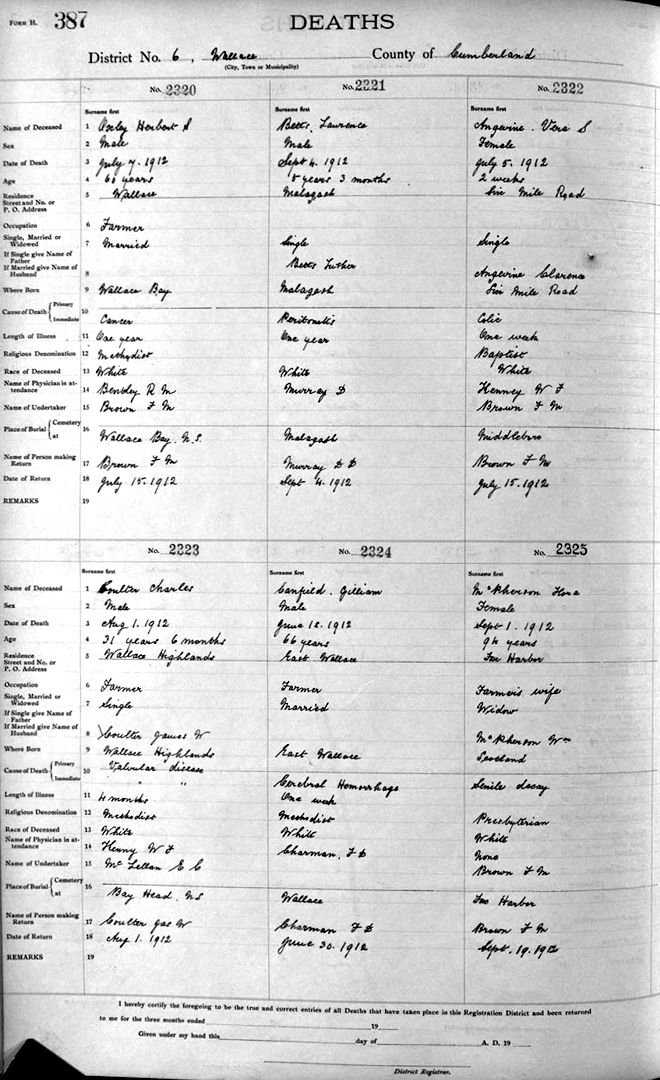 FORM H. 387 DEATHS
District No. 6, Wallace County of Cumberland
(City, Town or Municipality)
No. 2320 No. 2321 No. 2322
Surname first Surname first Surname first
Name of Deceased 1 Herbert S Betts, Laurence Angevine. Vera S
Sex 2 Male Male Female
Date of Death 3 July 7. 1912 Sept 4. 1912 July 5. 1912
Age 4 60 years 8 years 3 months 2 weeks
Residence Street and No. or P. O. Address 5 Wallace Malagash Six Mile Road
Occupation 6 Farmer
Single, Married or Widowed 7 Married Single Single
If Single give Name of Father
If Married give Name of Husband 8 Betts Luther Angevine Clarence
Where Born 9 Wallace Bay Malagash Six Mile Road
Cause of Death { Primary Immediate 10 Cancer Peritonitis Colic
Length of Illness 11 One year One year One week
Religious Denomination 12 Methodist Baptist
Race of Deceased 13 White White White
Name of Physician in attendance 14 Bentley R M Murray D Kenney W F
Name of Undertaker 15 Brown F M Brown F M
Place of Burial { Cemetery at 16 Wallace Bay. N.S. Malagash Middleboro
Name of Person making Return 17 Brown F M Murray D D Brown F M
Date of Return 18 July 15. 1912 Sept 4. 1912 July 15. 1912
REMARKS 19
No. 2323 No. 2324 No. 2325
Surname first Surname first Surname first
Name of Deceased 1 Coulter Charles Canfield. Gilliam McPherson Flora
Sex 2 Male Male Female
Date of Death 3 Aug 1. 1912 June 12. 1912 Sept 1. 1912
Age 4 31 years 6 months 66 years 94 years
Residence Street and No. or P. O. Address 5 Wallace Highlands East Wallace Fox Harbor
Occupation 6 Farmer Farmer Farmer's wife
Single, Married or Widowed 7 Single Married Widow
If Single give Name of Father
If Married give Name of Husband 8 Coulter James W McPherson Wm
Where Born 9 Wallace Highlands East Wallace Scotland
Cause of Death { Primary Immediate 10 Valvular disease " Cerebral Hemorrhage Senile decay
Length of Illness 11 4 months One week
Religious Denomination 12 Methodist Methodist Presbyterian
Race of Deceased 13 White White White
Name of Physician in attendance 14 Kenny W F Charman. F D None
Name of Undertaker 15 McLellan E C Brown F M
Place of Burial { Cemetery at 16 Bay Head. N S Wallace Fox Harbor
Name of Person making Return 17 Coulter Jas W Charman F D Brown F M
Date of Return 18 Aug 1. 1912 June 30. 1912 Sept. 19. 1912
REMARKS 19
I hereby certify the foregoing to be the true and correct entries of all Deaths that have taken place in this Registration District and been returned
to me for the three months ended 19
Given under my hand this day of A. D. 19
District Registrar.